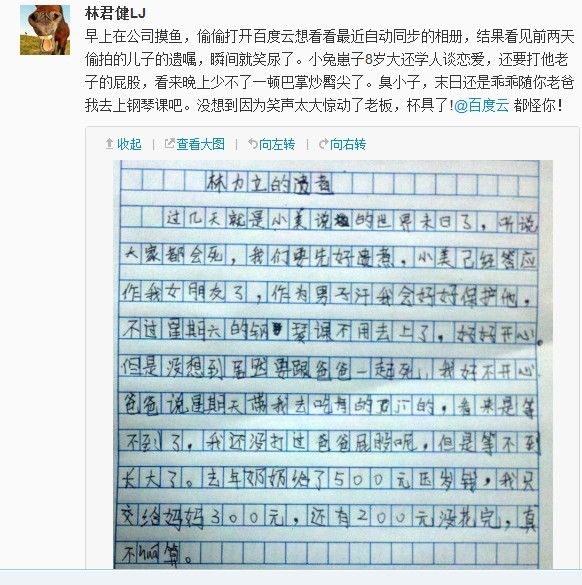 林君健LJ
早上在公司摸鱼，偷偷打开百度云想看看最近自动同步的相册，结果看见前两天
偷拍的儿子的遗嘱，瞬间就笑尿了。小兔崽子8岁大还学人谈恋爱，还要打他老
子的屁股，看来晚上少不了一顿巴掌炒臀尖了。臭小子，末日还是乖乖随你老爸
我去上钢琴课吧。没想到因为笑声太大惊动了老板，杯具了!@百度云 都怪你！
收起 | 查看大图 | 向左转 | 向右转
林力立的遗者
过几天就是小美说的世界末日了，听说
大家都会死，我们要先好遗煮。小美已经答应
作我女朋友了，作为男子汗我会好好保护他。
不过星期六的钢琴课不用去上了，好好开心。
但是没想到居然要跟爸爸一起死，我好不开心
爸爸说星期天带我去吃肯的百门的，看来是等
不到了，我还没打过爸爸屁股呢，但是等不到
长大了。去年奶奶给了500元压岁钱，我只
交给妈妈300元，还有200元没花完，真
不huá算。